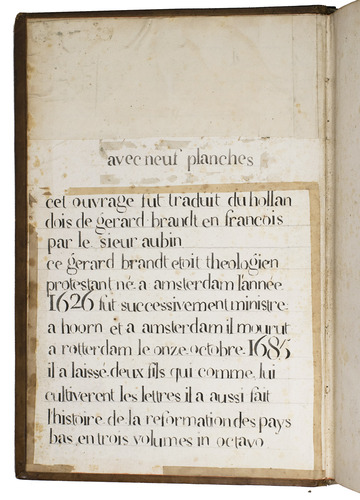 avec neuf planches
cet ouvrage fut traduit du hollan
dois de gerard brandt en francois
par le sieur aubin
ce gerard brandt etoit theologien
protestant né a amsterdam l'année
1626 fut successivement ministre
a hoorn et a amsterdam il mourut
a rotterdam le onze octobre 1685
il a laissé deux fils qui comme lui
cultiverent les lettres il a aussi fait
l'histoire de la reformation des pays
bas en trois volumes in octavo